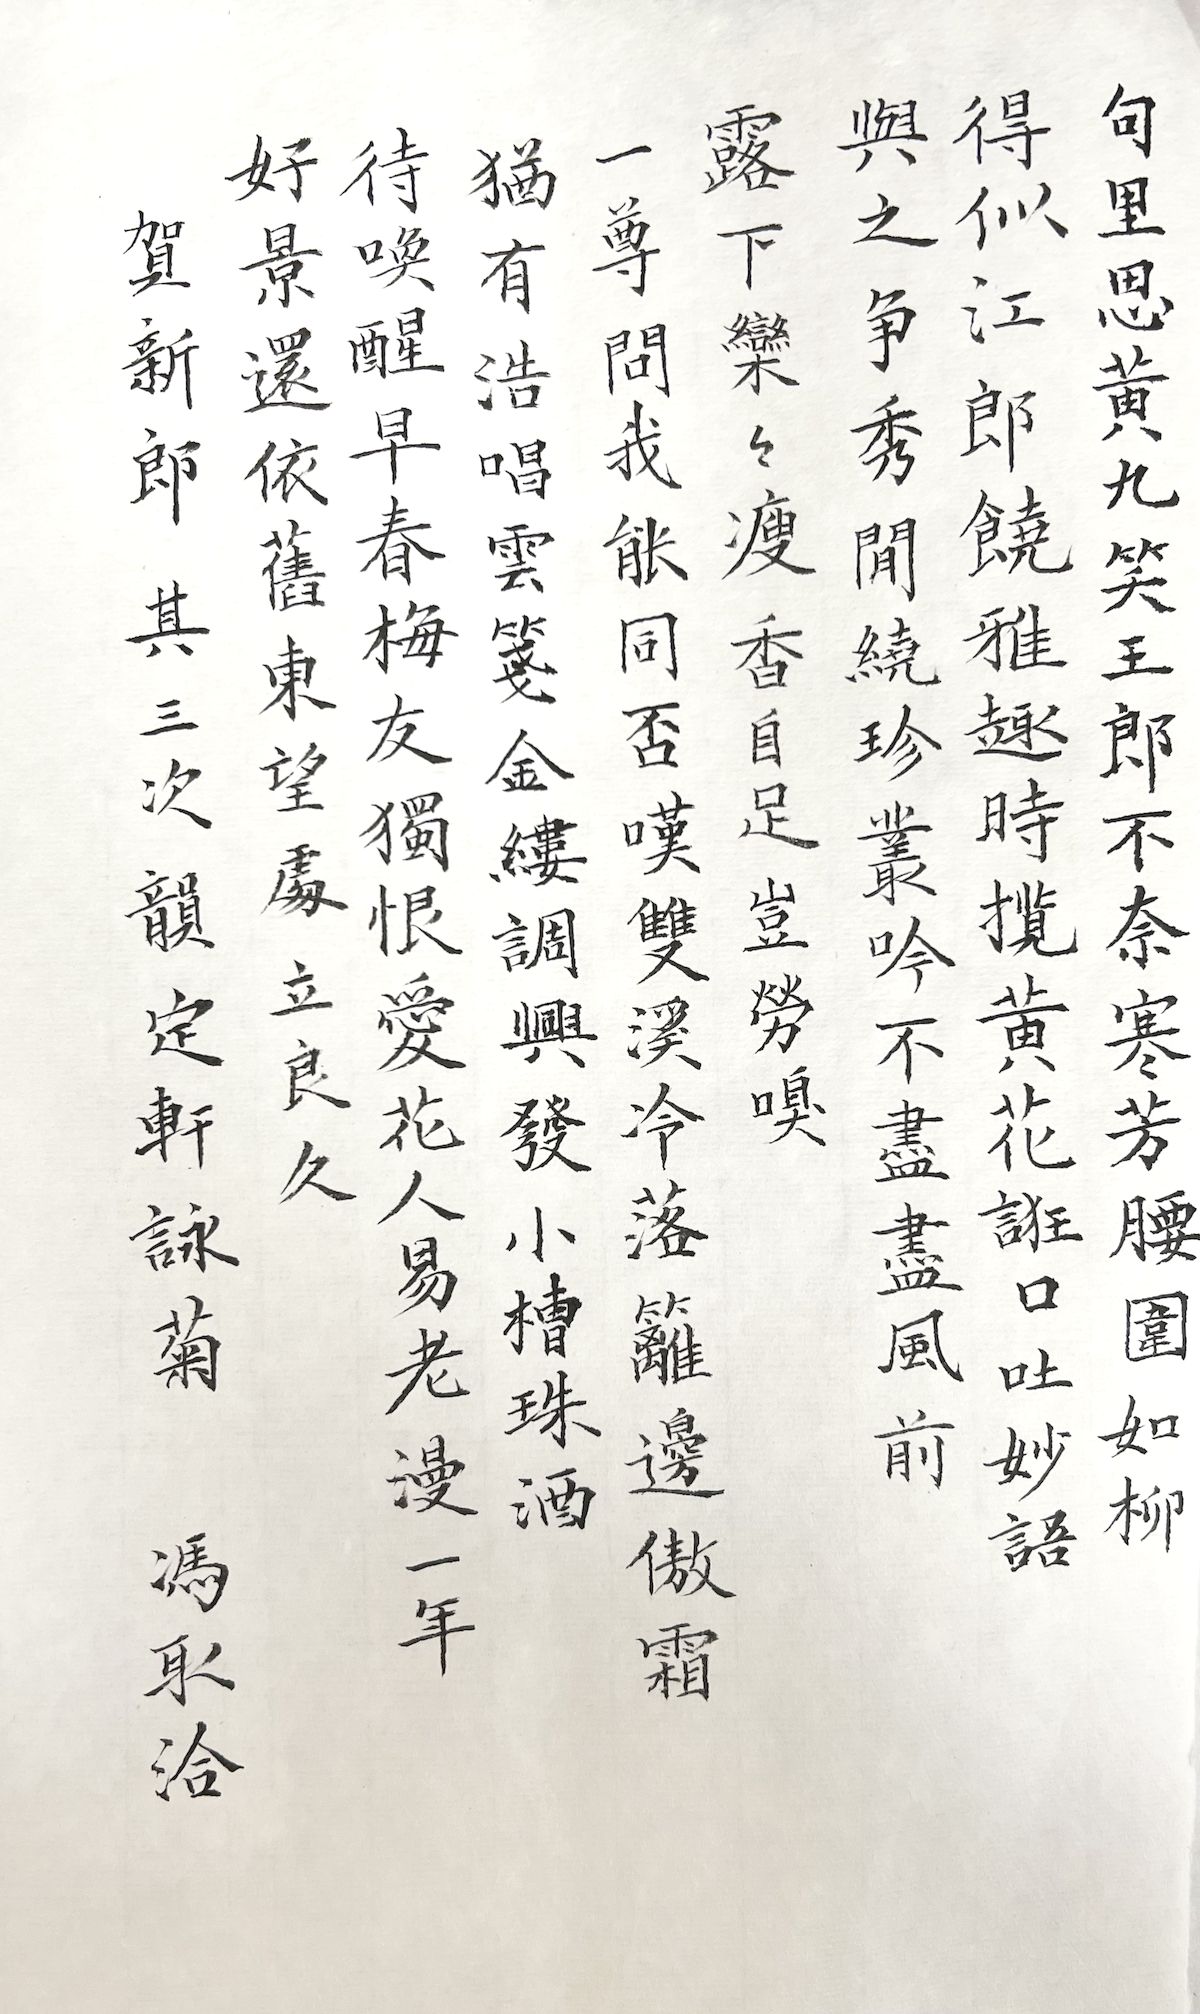 句里思黃九笑王郎不奈寒芳腰圍如柳
得似江郎饒雅趣時揽黃花誑口吐妙語
與之争秀閒繞珍叢吟不盡盡風前
露下欒々瘦香自足豈勞嗅
一尊問我能同否嘆雙溪冷落籬邊傲霜
猶有浩唱雲箋金縷調興發小槽珠酒
待喚醒早春梅友獨恨愛花人易老漫一年
好景還依舊東望處立良久
賀新郎 其三次韻定軒詠菊 馮取洽